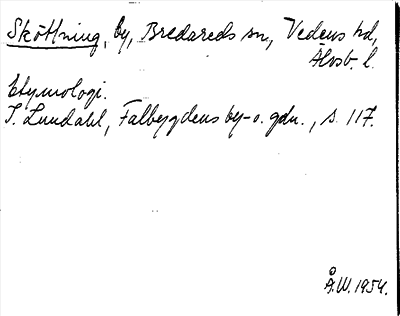 Sköttning, by, Bredareds sn, Vedens hd,
Älvsb. l.
Etymologi.
I. Lundahl, Falbygdens by- o. gdn., s. 117.
Å.W. 1954.